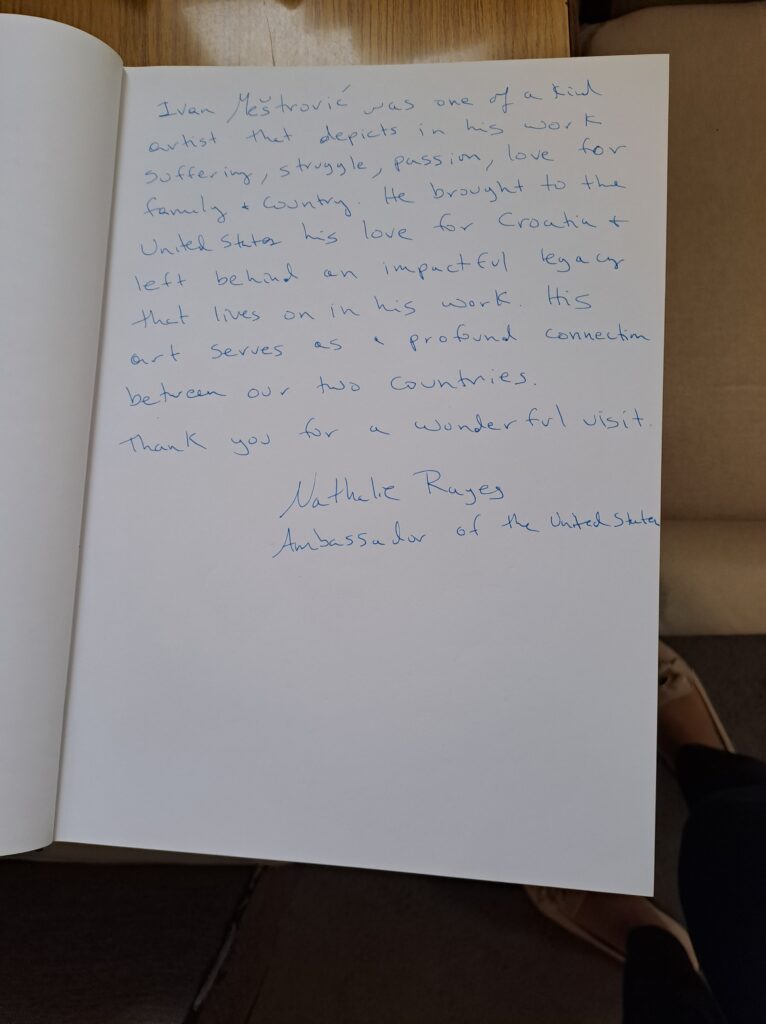 Ivan Meštrović was one of a kind
artist that depicts in his work
suffering, struggle, passion, love for
family + country. He brought to the
United States his love for Croatia +
left behind an impactful legacy
that lives on in his work. His
art serves as a profound connection
between our two countries.
Thank you for a wonderful visit.
Nathalie Rayes
Ambassador of the United States